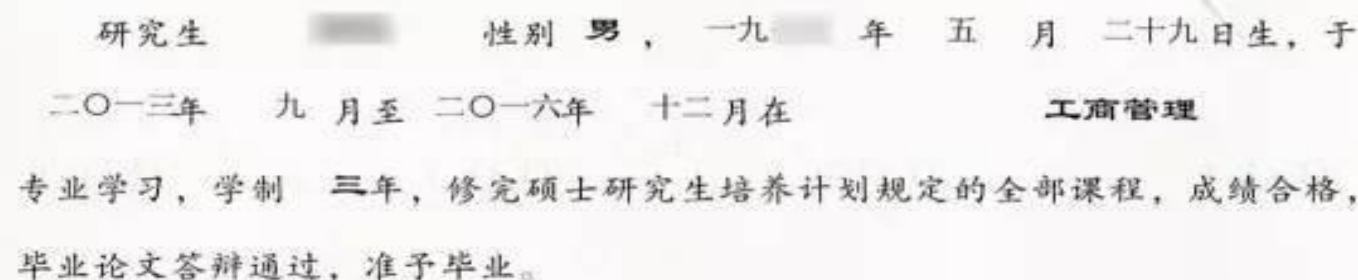 研究生 性别 男， 一九 年 五 月 二十九日生，于
二〇一三年 九 月至 二〇一六年 十二月在 工商管理
专业学习，学制 三年，修完硕士研究生培养计划规定的全部课程，成绩合格，
毕业论文答辩通过，准予毕业。